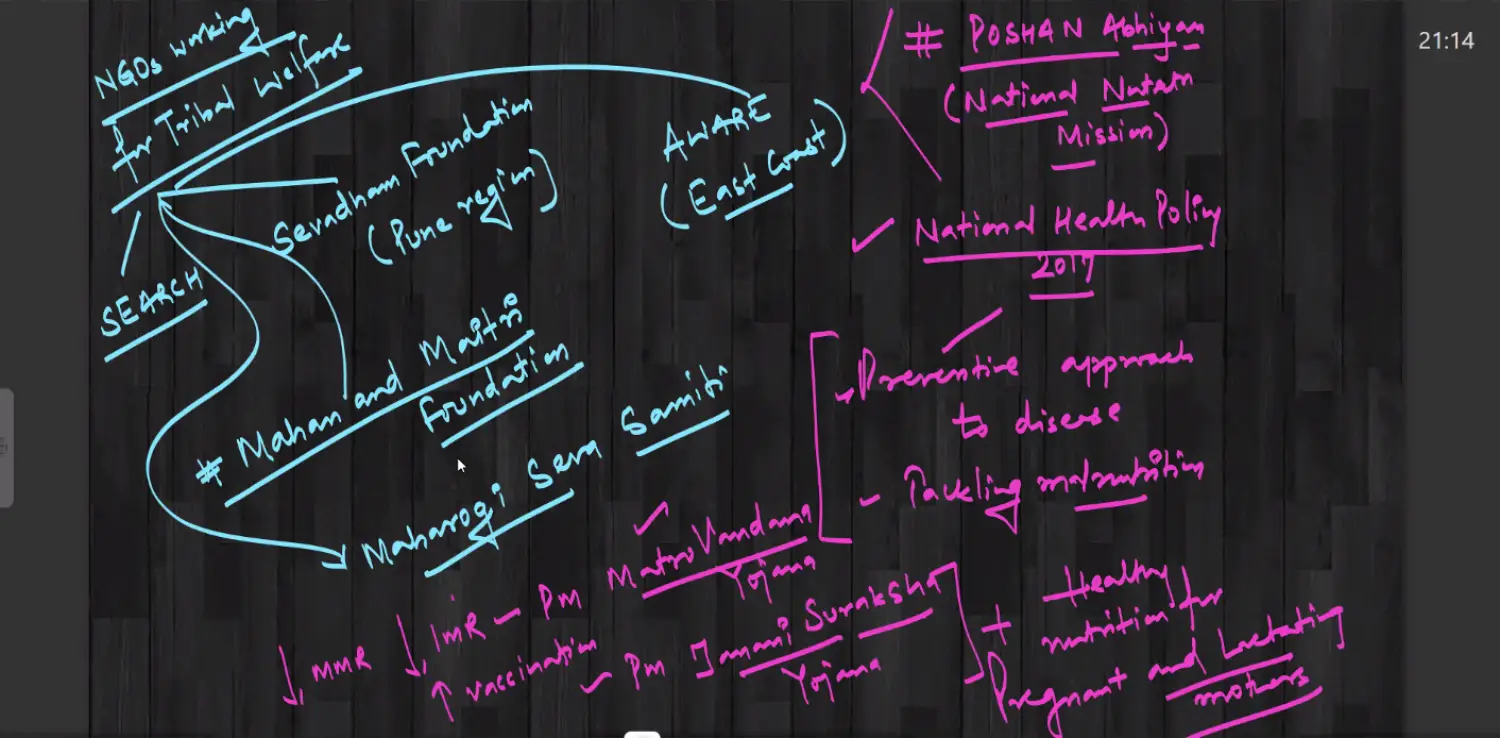 NGOs working
for Tribal Welfare
SEARCH
Sevadham Foundation
(Pune region)
AWARE
(East Coast)
# Mahan and Maitri
Foundation
Maharogi Seva Samiti
# POSHAN Abhiyan
(National Nutritn
Mission)
✓ National Health Policy
2017
Preventive approach
to disease
Tackling malnutrition
↓ MMR ↓ IMR - PM Matru Vandana
Yojana
↑ vaccination - PM Janani Suraksha
Yojana
+ Healthy
nutrition for
Pregnant and Lactating
mothers
21:14